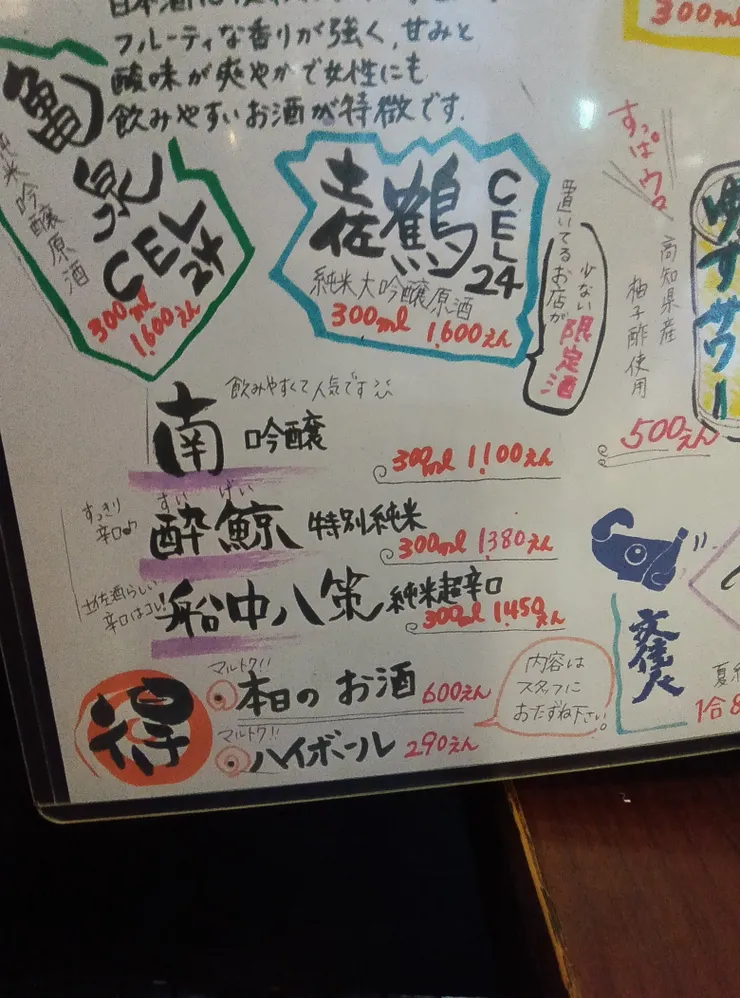 フルーティな香りが強く、甘みと
酸味が爽やかで女性にも
飲みやすいお酒が特徴です.
300ml
亀泉
CEL24
純米吟醸原酒
300ml
1,600えん
土佐鶴
CEL24
純米大吟醸原酒
300ml 1,600えん
置いてるお店が
少ない
限定酒
すっぱウ。
高知県産
柚子酢使用
ゆずサワー
500えん
飲みやすくて人気です
南 吟醸
300ml 1,100えん
すっきり
辛口
すいげい
酔鯨 特別純米
300ml 1,380えん
土佐酒らしい
辛口はコレ!
船中八策 純米超辛口
300ml 1,450えん
得
マルトク!!
本日の お酒 600えん
マルトク!!
ハイボール 290えん
内容は
スタッフに
おたずね下さい。
文佳人
1合